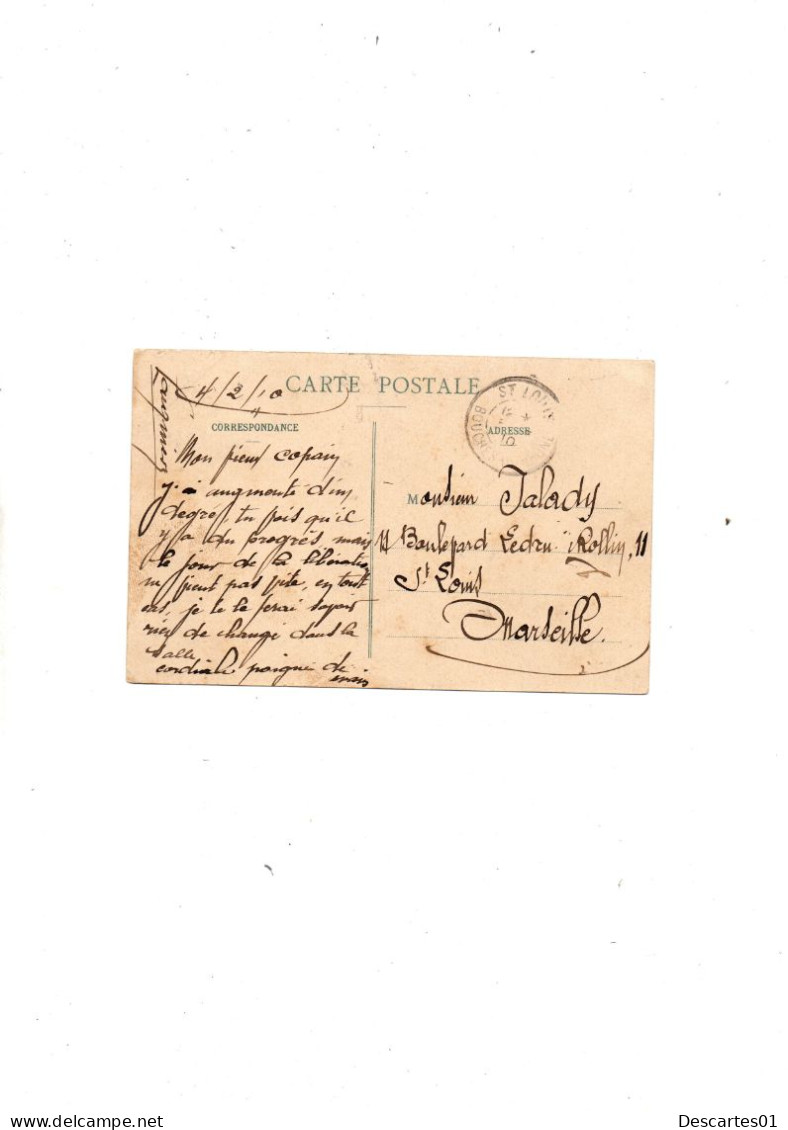 CARTE POSTALE
4/2/10
CORRESPONDANCE
ADRESSE
ST LOUIS
BOUCHES
Mon vieux copain
j'ai augmenté d'un
degré, tu vois qu'il
y a du progrès mais
le jour de la libération
ne vient pas vite, en tout
cas, je te le ferai savoir
rien de changé dans la
salle
cordiale poignée de
main
Monsieur Talady
11 Boulevard Ledru-Rollin, 11
St Louis
Marseille.
Descartes01